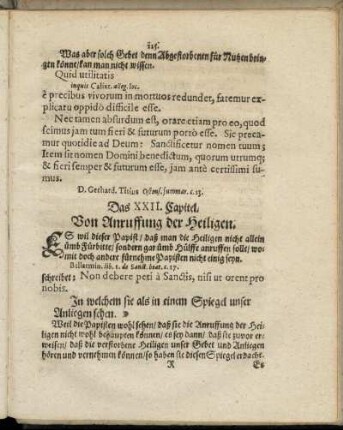 Was aber solch Gebet denn Abgestorbenen für Nutzen brin-
gen könne/ kan man nicht wissen.
Quid utilitatis
inquit Calixt. alleg. loc.
è precibus vivorum in mortuos redundet, fatemur ex-
plicatu oppidò difficile esse.
Nec tamen absurdum est, orare etiam pro eo, quod
scimus jam tum fieri & futurum portò esse. Sic preca-
mur quotidie ad Deum: Sanctificetur nomen tuum;
Item sit nomen Domini benedictum, quorum utrumq;
& fieri semper & futurum esse, jam antè certissimi su-
mus.
D. Gerhard. Titius Ostens. summar. c. 13.
Das XXII. Capitel/
Von Anruffung der Heiligen.
ES wil dieser Papist/ daß man die Heiligen nicht allein
ümb Fürbitte/ sondern gar ümb Hülffe anruffen solle/ wo-
mit doch andere fürnehme Papisten nicht einig seyn.
Bellarmin. lib. 1. de Sanct. beat. c. 17.
schreibet; Non debere peti à Sanctis, nisi ut orent pro
nobis.
In welchem sie als in einem Spiegel unser
Anliegen sehen.
Weil die Papisten wohl sehen/ daß sie die Anruffung der Hei-
ligen nicht wohl behäupten können/ es sey dann/ daß sie zuvor er-
weisen/ daß die verstorbene Heiligen unser Gebet und Anliegen
hören und vernehmen können/ so haben sie diesen Spiegel erdacht.
R Es